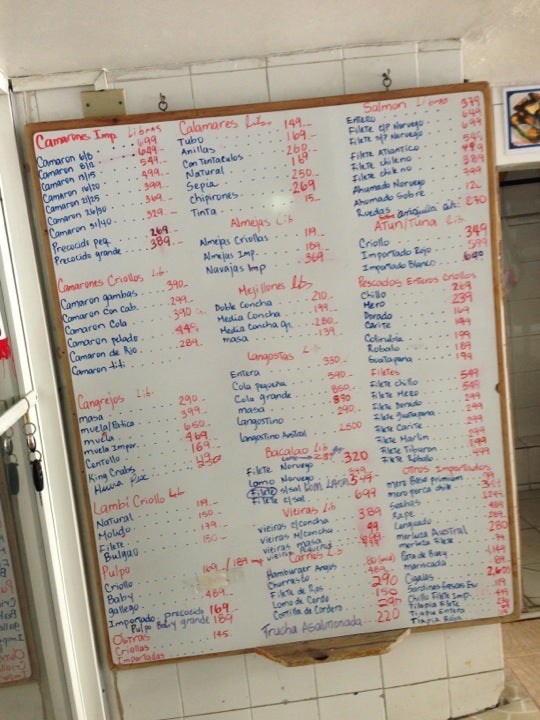 Camarones Imp. Libras
Camaron 6/8 699
Camaron 8/12 649
Camaron 13/15 549
Camaron 16/20 499
Camaron 21/25 399
Camaron 26/30 369
Camaron 31/40 329
Precocido peq. 269
Precocido grande 389
Camarones Criollos Lib.
Camaron gambas 390
Camaron Con cab. 299
Camaron Cola 390
Camaron pelado 445
Camaron de Rio 289
Camaron titi
Cangrejos Lib.
masa 290
muela/Patica 399
muela 650
muela Impor. 469
Centollo 169
King Crabs
Lambí Criollo Lib
Natural 119
Molido 150
Filete 179
Bulgao 150
Pulpo
Criollo 169 / 189
Baby
Gallego 489
Importado precocido 169
Pulpo Baby grande 189
Ostras
Criollas 145
Importadas
Calamares Lib.
Tubo 149
Anillas 169
Con Tentaculos 260
Natural 169
Sepia 250
chipirones 269
Tinta 15
Almejas Lib
Almejas Criollas 119
Almejas Imp. 189
Navajas Imp 369
Mejillones lb
Doble Concha 210
Media Concha 199
Media Concha gr. 280
masa 139
Langostas Lib
Entera 330
Cola pequeña 590
Cola grande 650
masa 890
Langostino 290
Langostino Austral 2,500
Bacalao Lib
Filete Noruego 320
Lomo Noruego
Filete s/sal
Filete c/sal 699
Vieiras Lib
vieiras c/concha 389
vieiras m/concha 99
vieiras masa
vieiras pequeña
Carnes Lib
Hamburger Angus
Churrasco 489
Filete de Res 290
Lomo de Cerdo 150
Costilla de Cordero 290
Trucha Asalmonada 220
Salmon Libras
Entero 379
Filete c/p Noruego 699
Filete s/p Noruego 699
Filete Atlantico 545
Filete chileno 499
Filete chileno 389
Ahumado Noruego 399
Ahumado Sobre
Ruedas
Atun/Tuna Lib.
Criollo 349
Importado Rojo 599
Importado Blanco 699
Pescados Enteros Criollos
Chillo 269
Mero 239
Dorado 169
Carite 199
Colirubia 199
Robalo 189
Guatapana 199
Filetes
Filete Chillo 549
Filete Mero 549
Filete Dorado 299
Filete Guatapana 299
Filete Carite 299
Filete Marlin 299
Filete Tiburon 199
Filete Robalo 499
Otros Importados
mero Basa premium 99
mero perca chile
Gambas 1245
Rape 489
Lenguado 289
merluza Austral 280
merluza Filete
Pata de Buey
mariscada 89
Cigalas 2,600
Sardinas frescas
Chillo Filete Imp.
Tilapia Filete
Tilapia Entera
Tilapia Roja